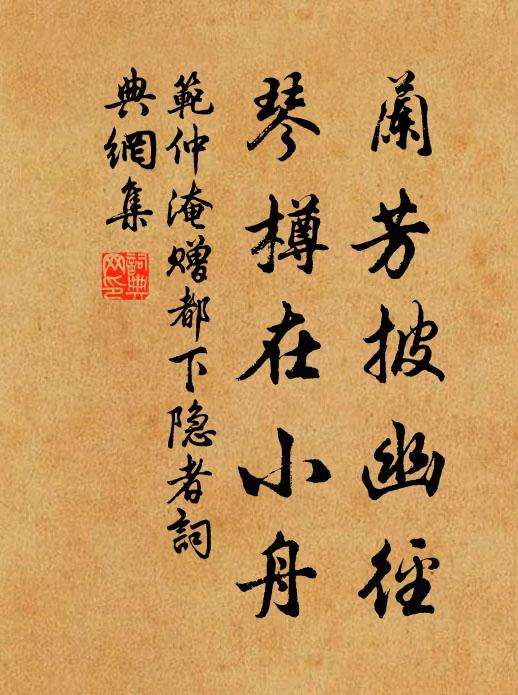 蘭芳披幽徑
琴樽在小舟
範仲淹赠都下隐者詞
典網集
詞典
网印